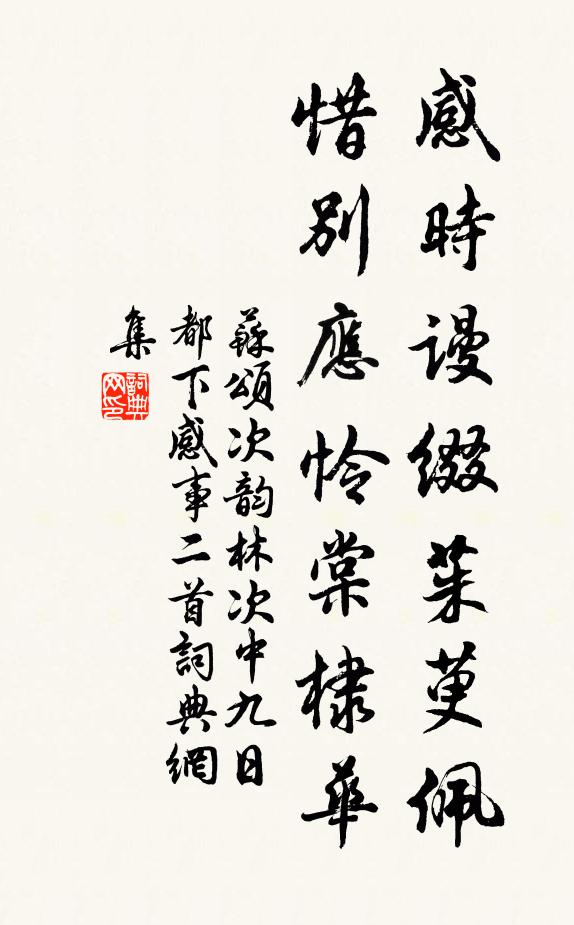 感時謾綴茱萸佩
惜別應怜棠棣華
蘇頌次韵林次中九日
都下感事二首詞典網
集
詞典
网印